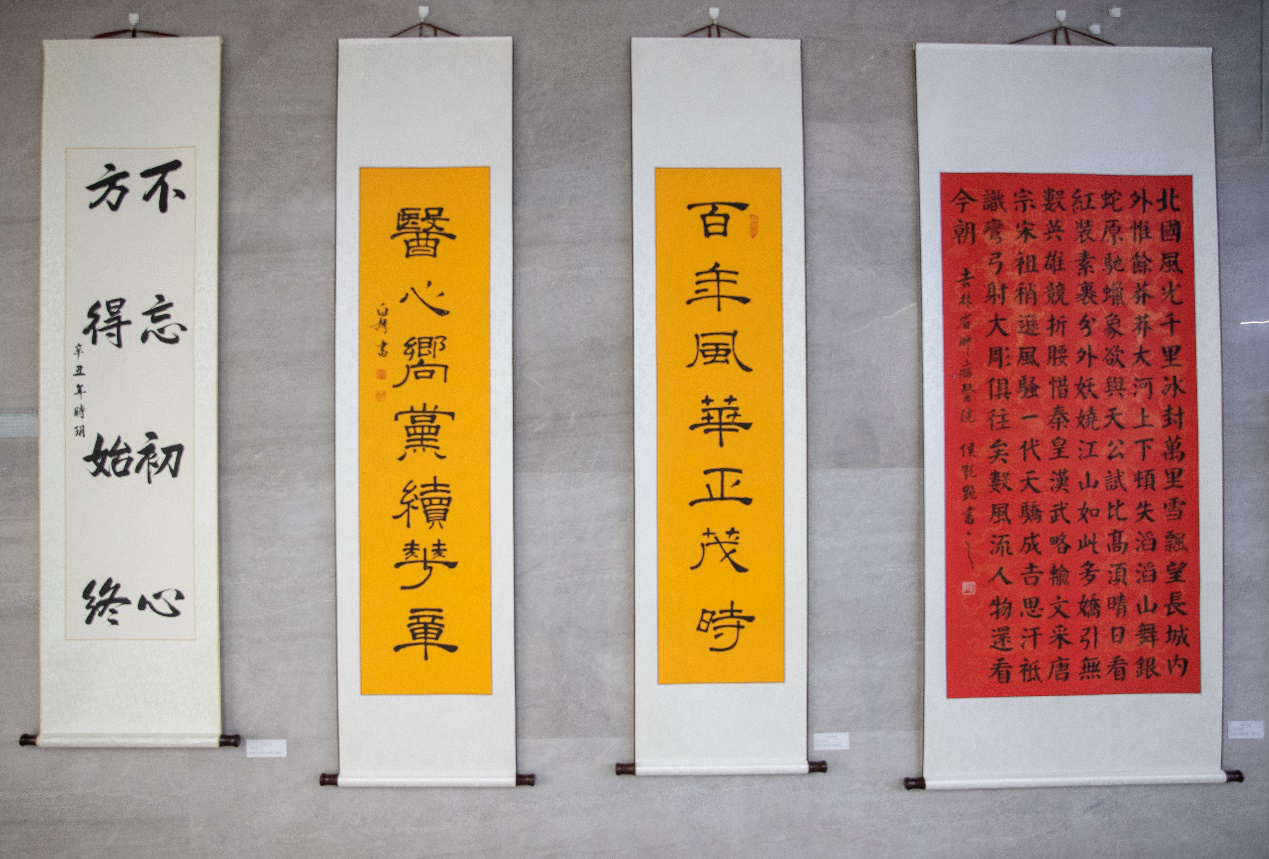 北國風光千里冰封萬里雪飄望長城内
外惟餘莽莽大河上下頓失滔滔山舞銀
蛇原馳蠟象欲與天公試比髙須晴日看
紅裝素裹分外妖嬈江山如此多嬌引無
數英雄競折腰惜秦皇漢武略輸文采唐
宗宋祖稍遜風騷一代天驕成吉思汗祗
識彎弓射大彫俱往矣數風流人物還看
今朝
吉林省肿瘤醫院 侯艷艷書
百年風華正茂時
醫心嚮黨續華章
書
不忘初心
方得始終
辛丑年時玥